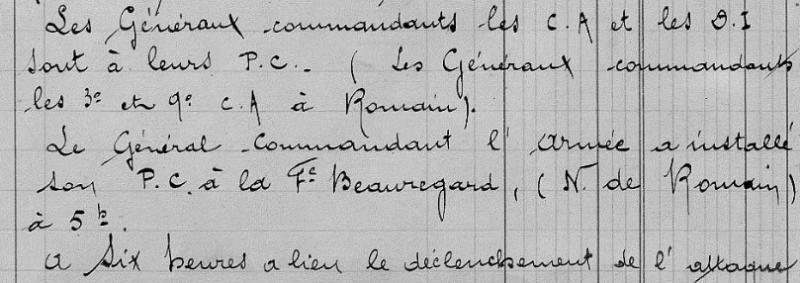 Les Généraux commandants les C.A et les D.I
sont à leurs P.C._ ( Les Généraux commandants
les 3e et 9e C.A à Romain).
Le Général Commandant l'Armée a installé
son P.C. à la Fe Beauregard, (N. de Romain)
à 5h.
A six heures a lieu le déclenchement de l'attaque